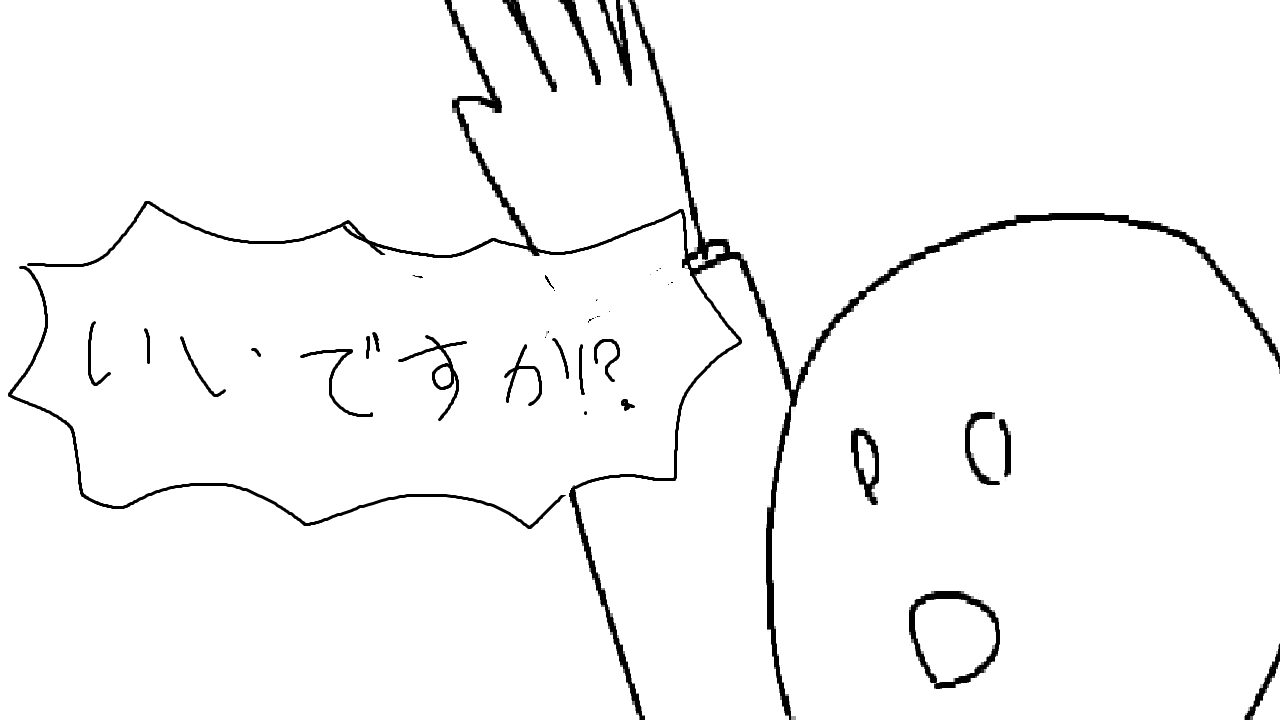 いいですか!?